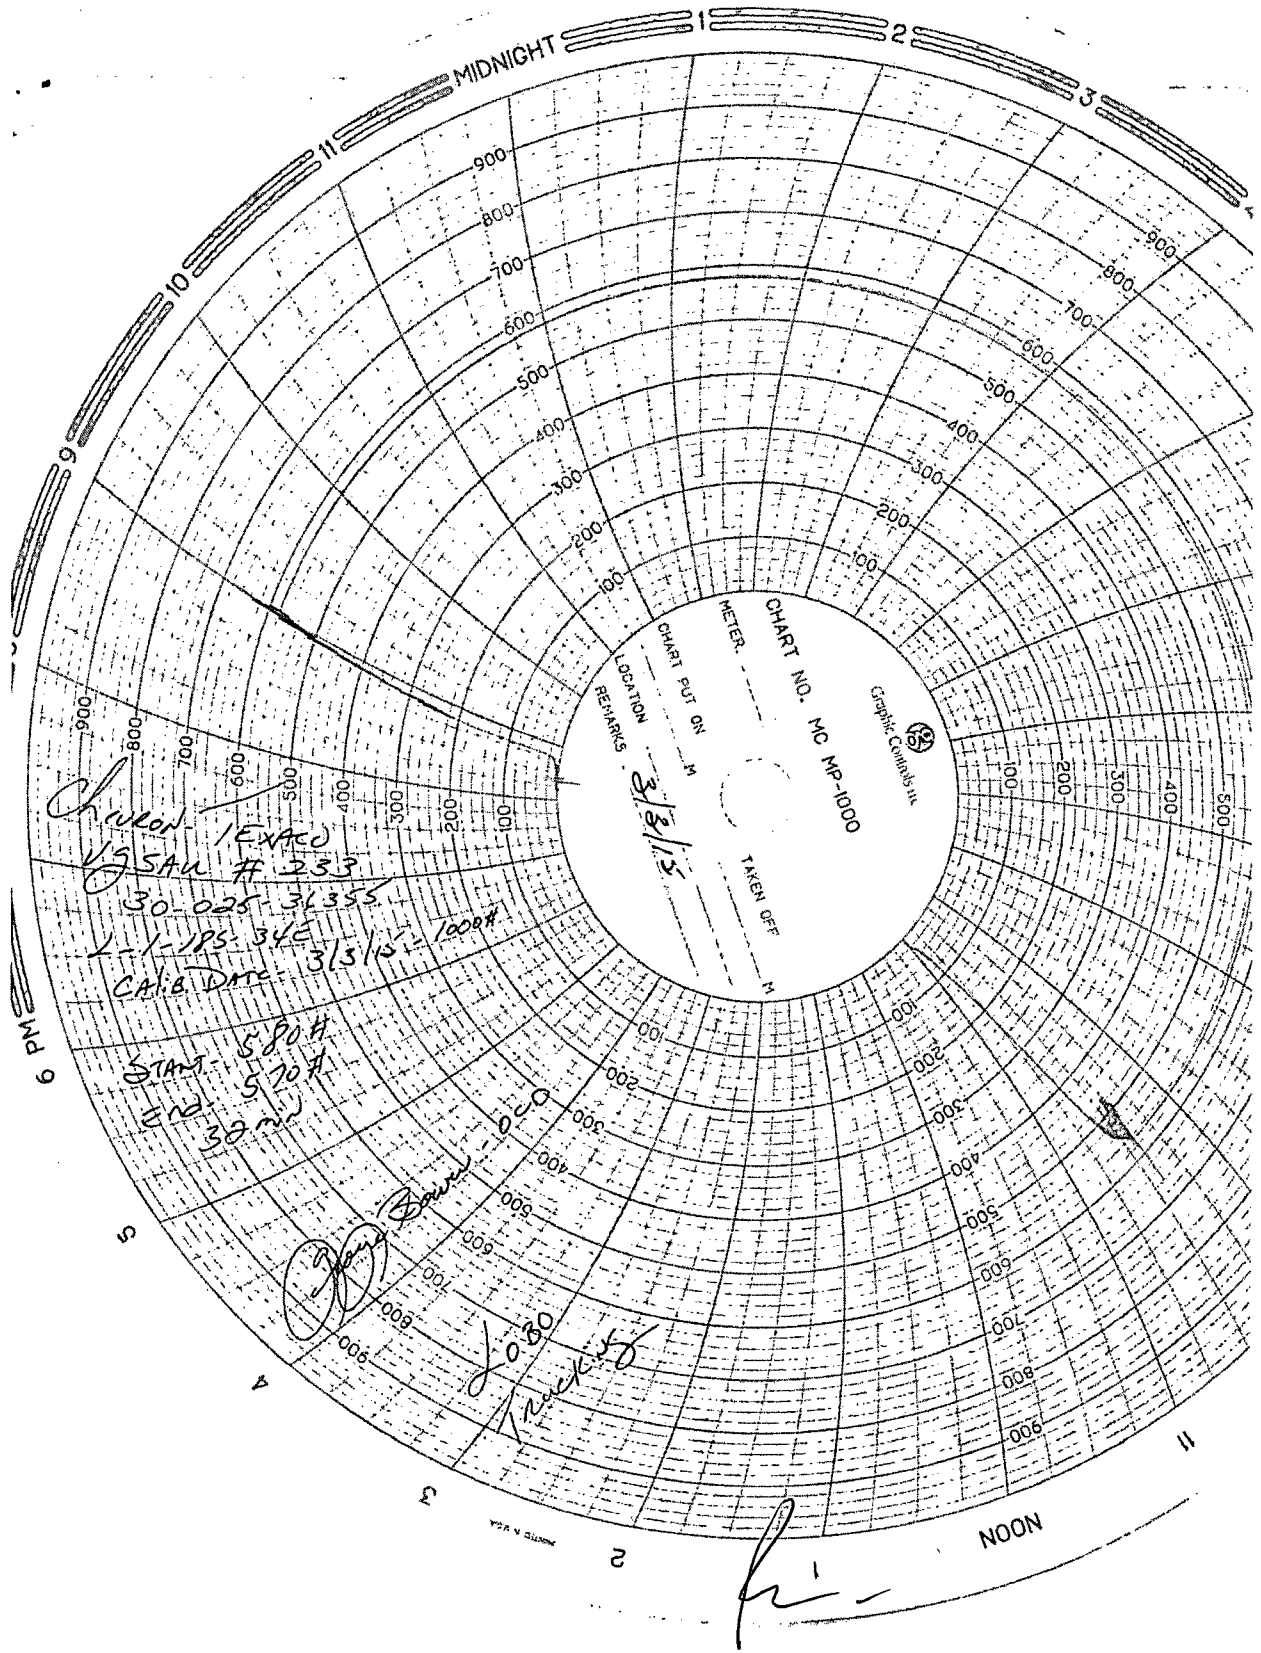 MIDNIGHT
1
2
3
4
11
10
9
6 PM
5
4
3
2
1
NOON
11
900
800
700
600
500
400
300
200
100
900
800
700
600
500
400
300
200
100
900
800
700
600
500
400
300
200
100
100
200
300
400
500
100
200
300
400
500
600
700
800
900
100
200
300
400
500
600
700
800
900
Graphic Controls
CHART NO. MC MP-1000
METER
CHART PUT ON
M
TAKEN OFF
M
LOCATION
REMARKS
3/3/15
Chevron - Texaco
VGSAU # 233
30-025-31355
L-1-18S-34E
CALIB DATE - 3/3/15 - 1000#
START - 580#
End - 570#
32 min
Brown - OCD
LOBO
Trucking
PRINTED IN U.S.A.